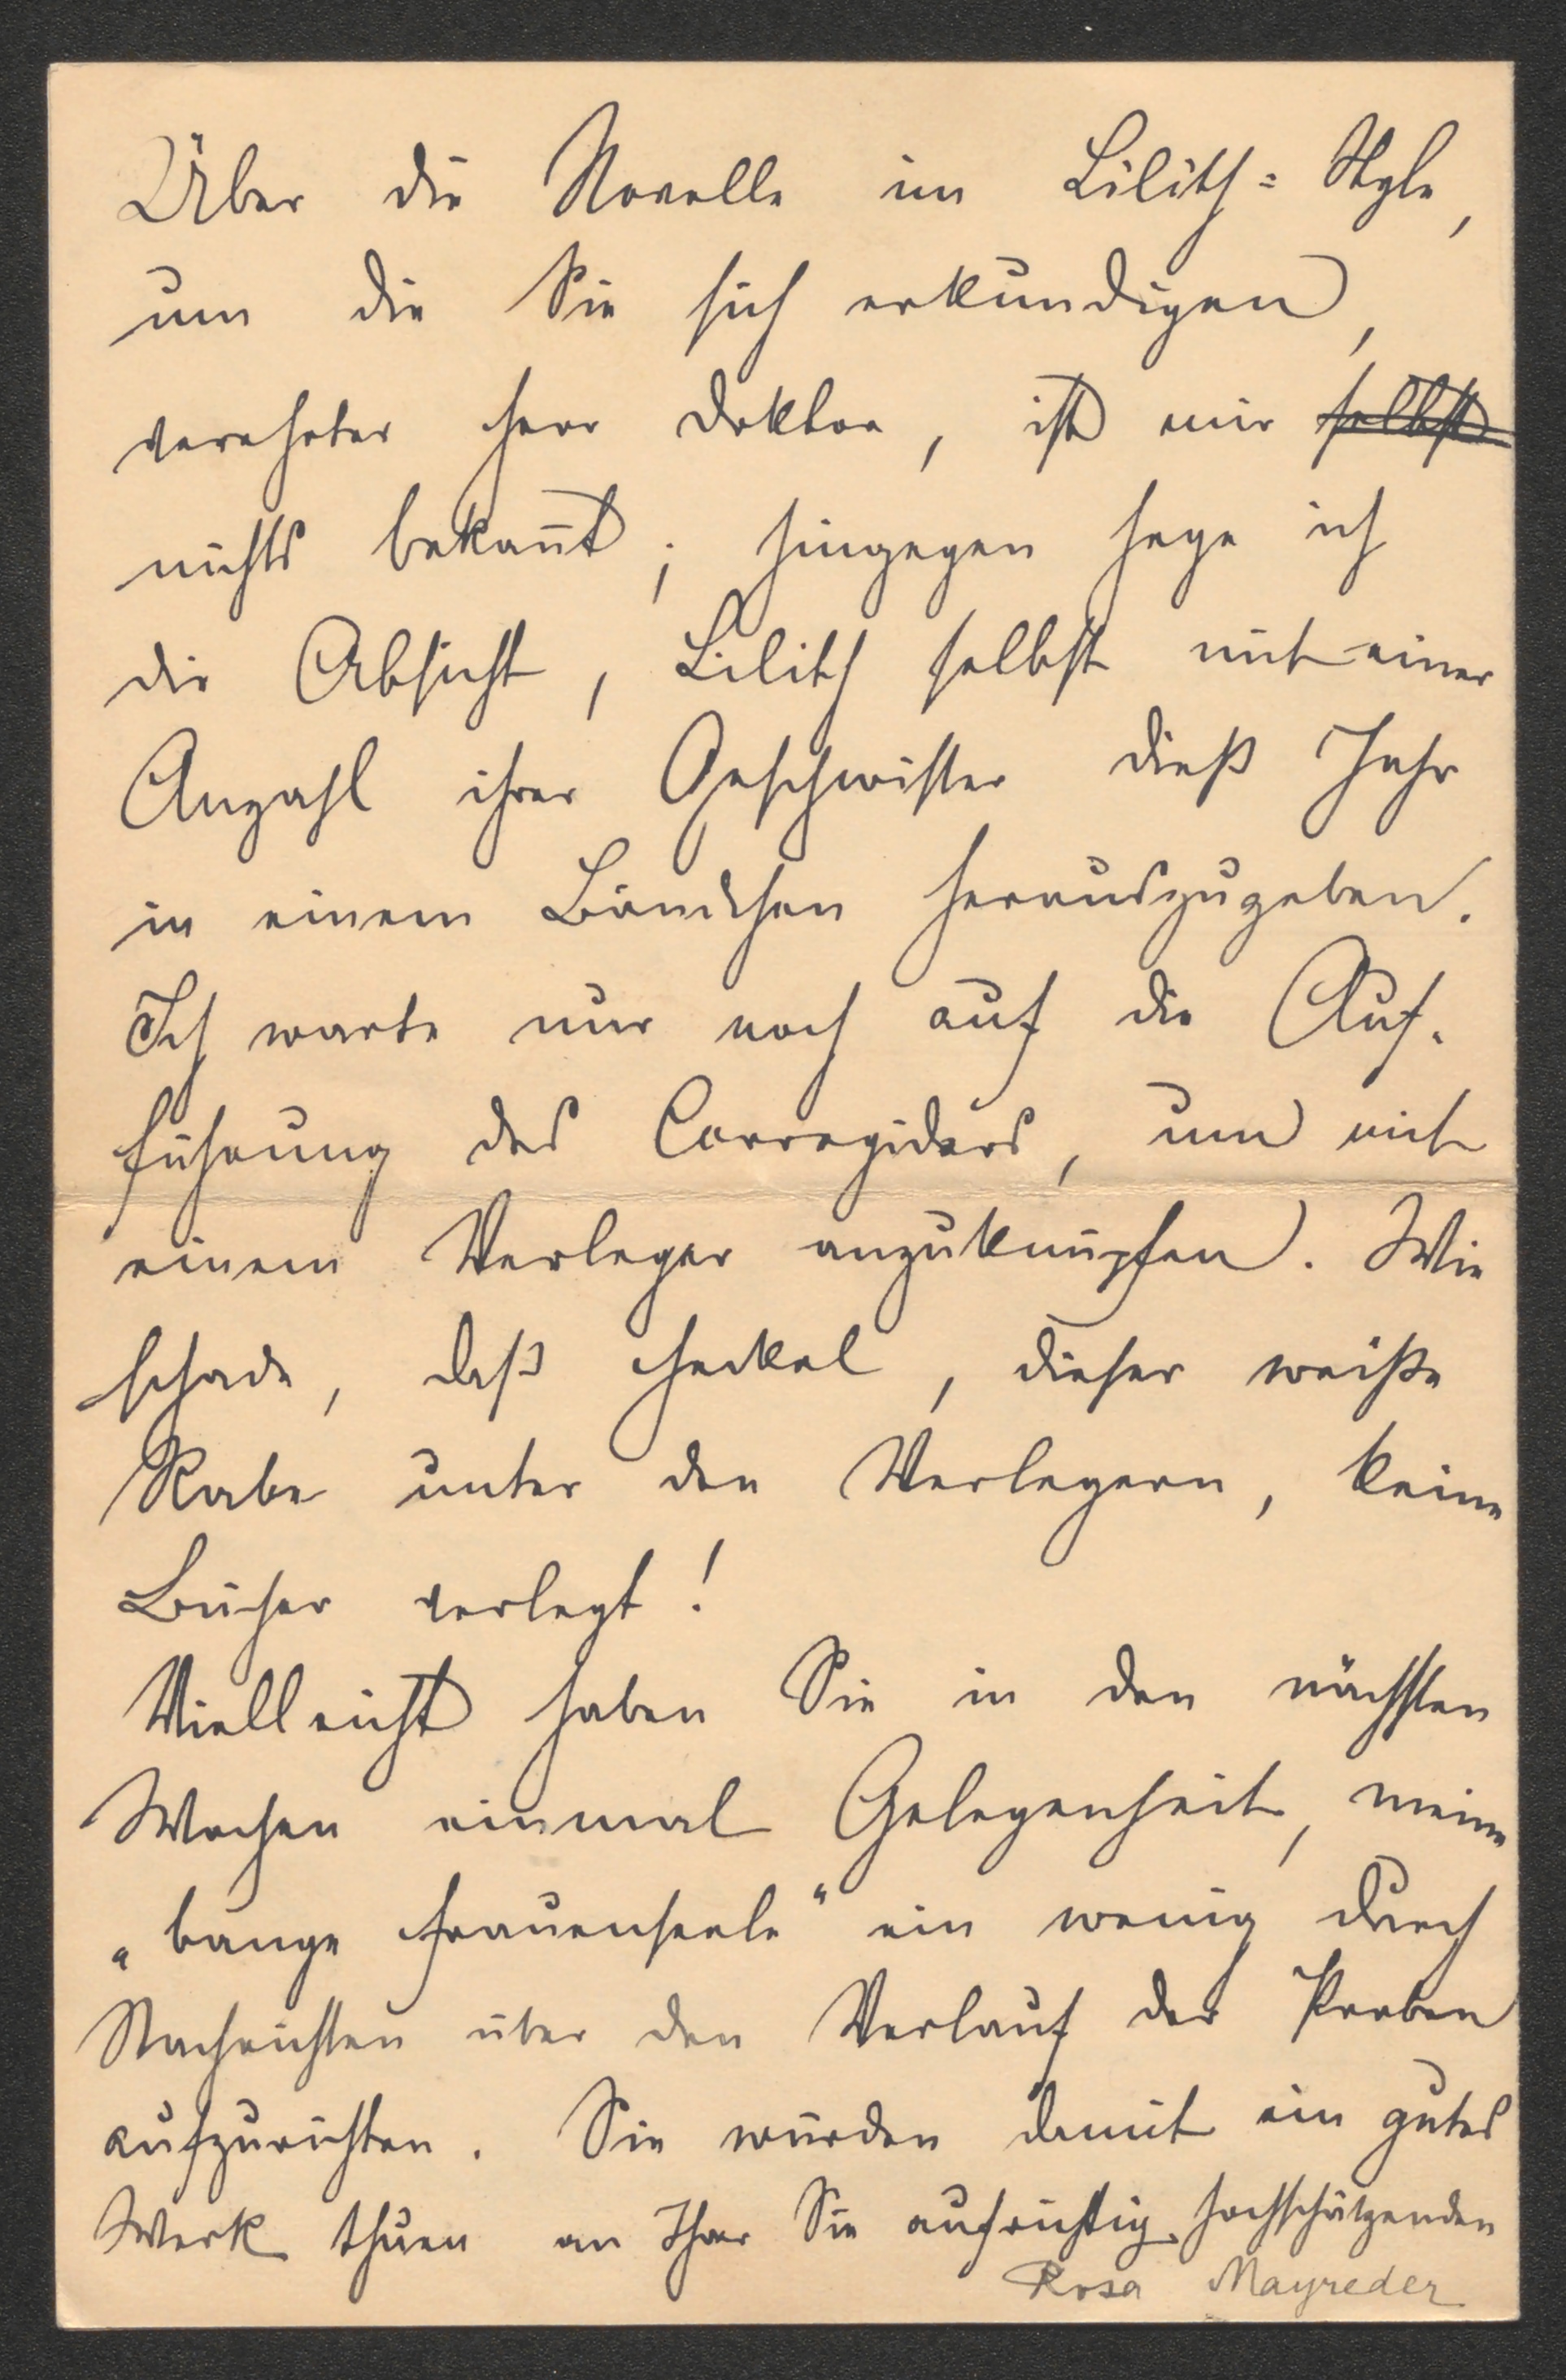 Über die Novelle im Lilith=Style,
um die Sie sich erkundigen,
verehrter Herr Doktor, ist mir selbst
nichts bekannt; hingegen hege ich
die Absicht, Lilith selbst mit einer
Anzahl ihrer Geschwister dieß Jahr
in einem Bändchen herauszugeben.
Ich warte nur noch auf die Auf-
führung des Corregidors, um mit
einem Verleger anzuknüpfen. Wie
schade, daß Heckel, dieser weiße
Rabe unter den Verlegern, keine
Bücher verlegt!
Vielleicht haben Sie in den nächsten
Wochen einmal Gelegenheit, meine
„bange Frauenseele“ ein wenig durch
Nachrichten über den Verlauf der Proben
aufzurichten. Sie würden damit ein gutes
Werk thuen an Ihrer Sie aufrichtig hochschätzenden
Rosa Mayreder